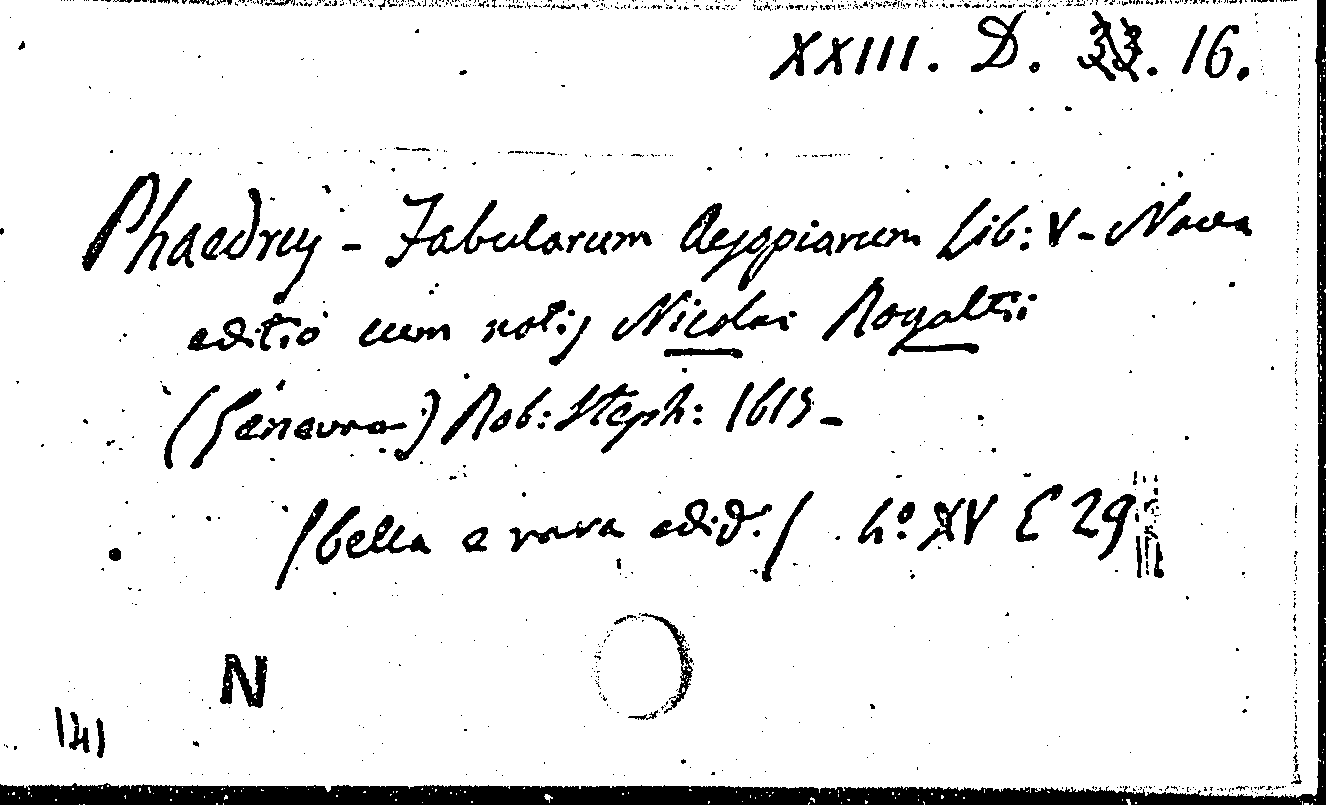 XXIII. D. 16.
Phaedrus - Fabularum Aesopiarum Lib: V - Nova
editio cum notis Nicolai Rigaltii
(Genevra) Rob: Steph: 1615 -
(bella e rara ediz.) h.º XV E 29
N
141